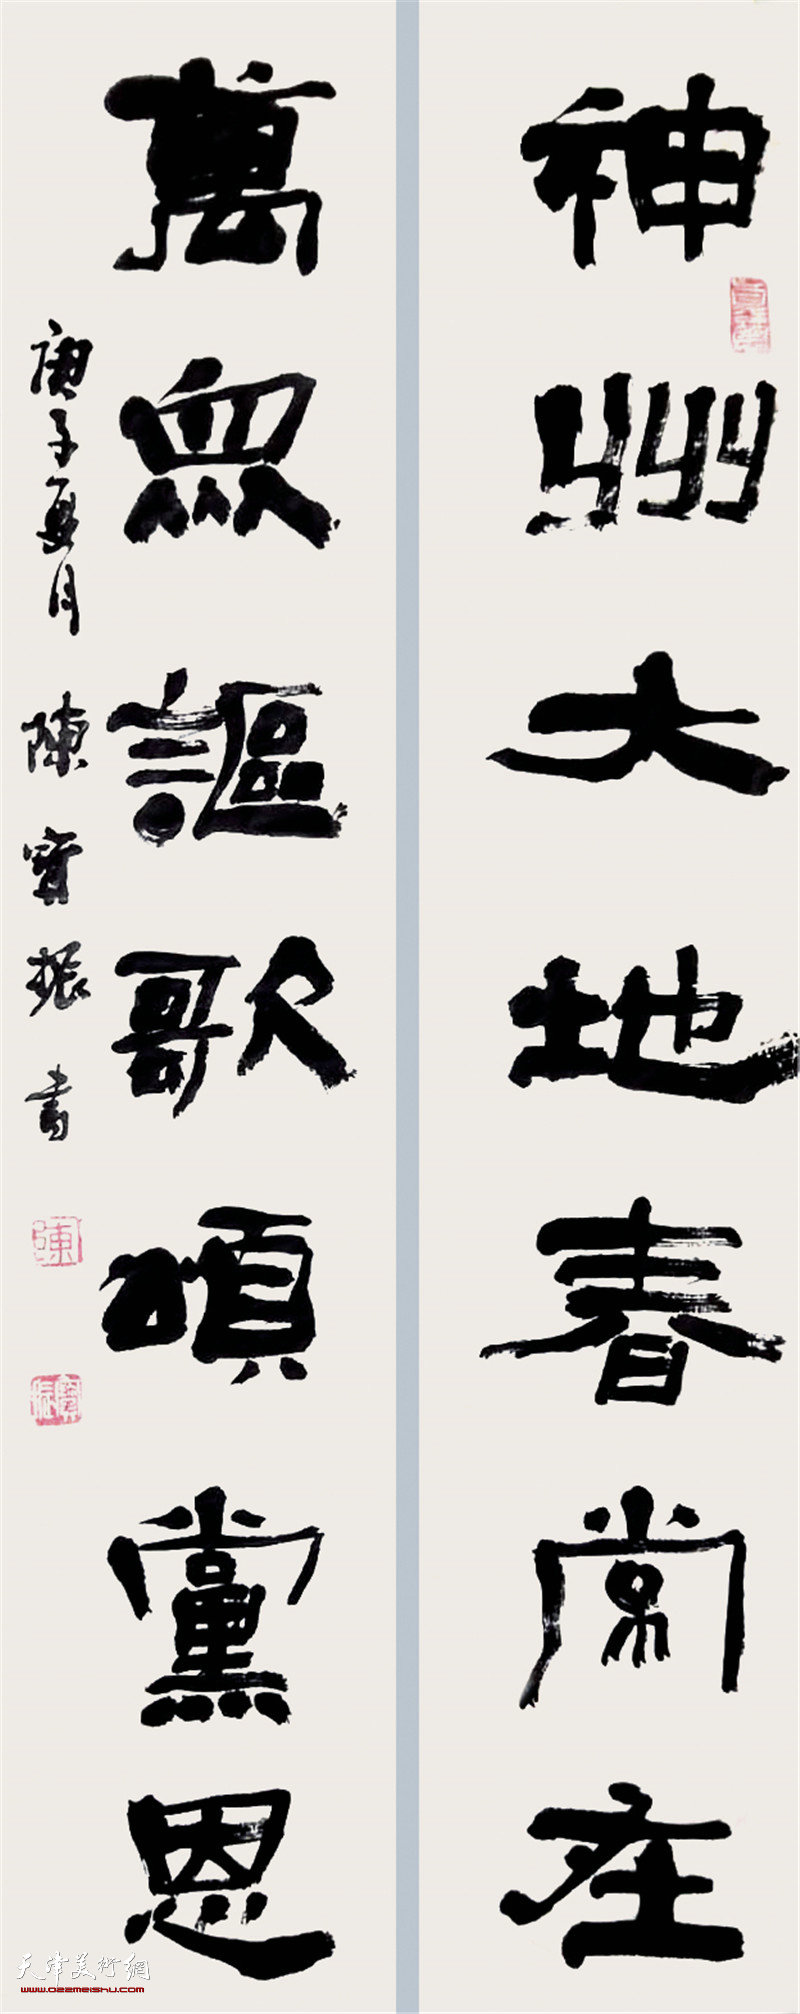 神州大地春常在
萬眾謳歌頌黨恩
庚子夏月 陳寶振書
陳
寶振
天津美术網
www.022meishu.com